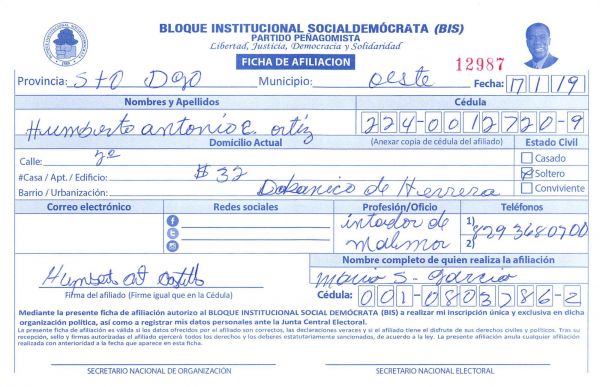 BLOQUE INSTITUCIONAL SOCIALDEMÓCRATA (BIS)
PARTIDO PEÑAGOMISTA
Libertad, Justicia, Democracia y Solidaridad
FICHA DE AFILIACION
12987
Provincia: Sto Dgo Municipio: Oeste Fecha: 17/1/19
Nombres y Apellidos Cédula
Humberto antonio C. ortiz 224-0012720-9
Domicilio Actual (Anexar copia de cédula del afiliado) Estado Civil
Calle: 7a Casado
#Casa / Apt. / Edificio: #32 Soltero
Barrio / Urbanización: de Herrera Conviviente
Correo electrónico Redes sociales Profesión/Oficio Teléfonos
de 1) 829 3680700
2)
Nombre completo de quien realiza la afiliación
Humberto Mario S. Garcia
Firma del afiliado (Firme igual que en la Cédula) Cédula: 001-0803786-2
Mediante la presente ficha de afiliación autorizo al BLOQUE INSTITUCIONAL SOCIAL DEMÓCRATA (BIS) a realizar mi inscripción única y exclusiva en dicha
organización política, así como a registrar mis datos personales ante la Junta Central Electoral.
La presente ficha de afiliación es válida si los datos ofrecidos por el afiliado son correctos, las declaraciones veraces y si el afiliado tiene el disfrute de sus derechos civiles y políticos. Tras su
recepción, sello y firmas autorizadas el afiliado ejercerá todos los derechos y los deberes estatutariamente sancionados, de acuerdo a la ley. La presente afiliación anula cualquier afiliación
realizada con anterioridad a la fecha que aparece en esta ficha.
SECRETARIO NACIONAL DE ORGANIZACIÓN SECRETARIO NACIONAL ELECTORAL